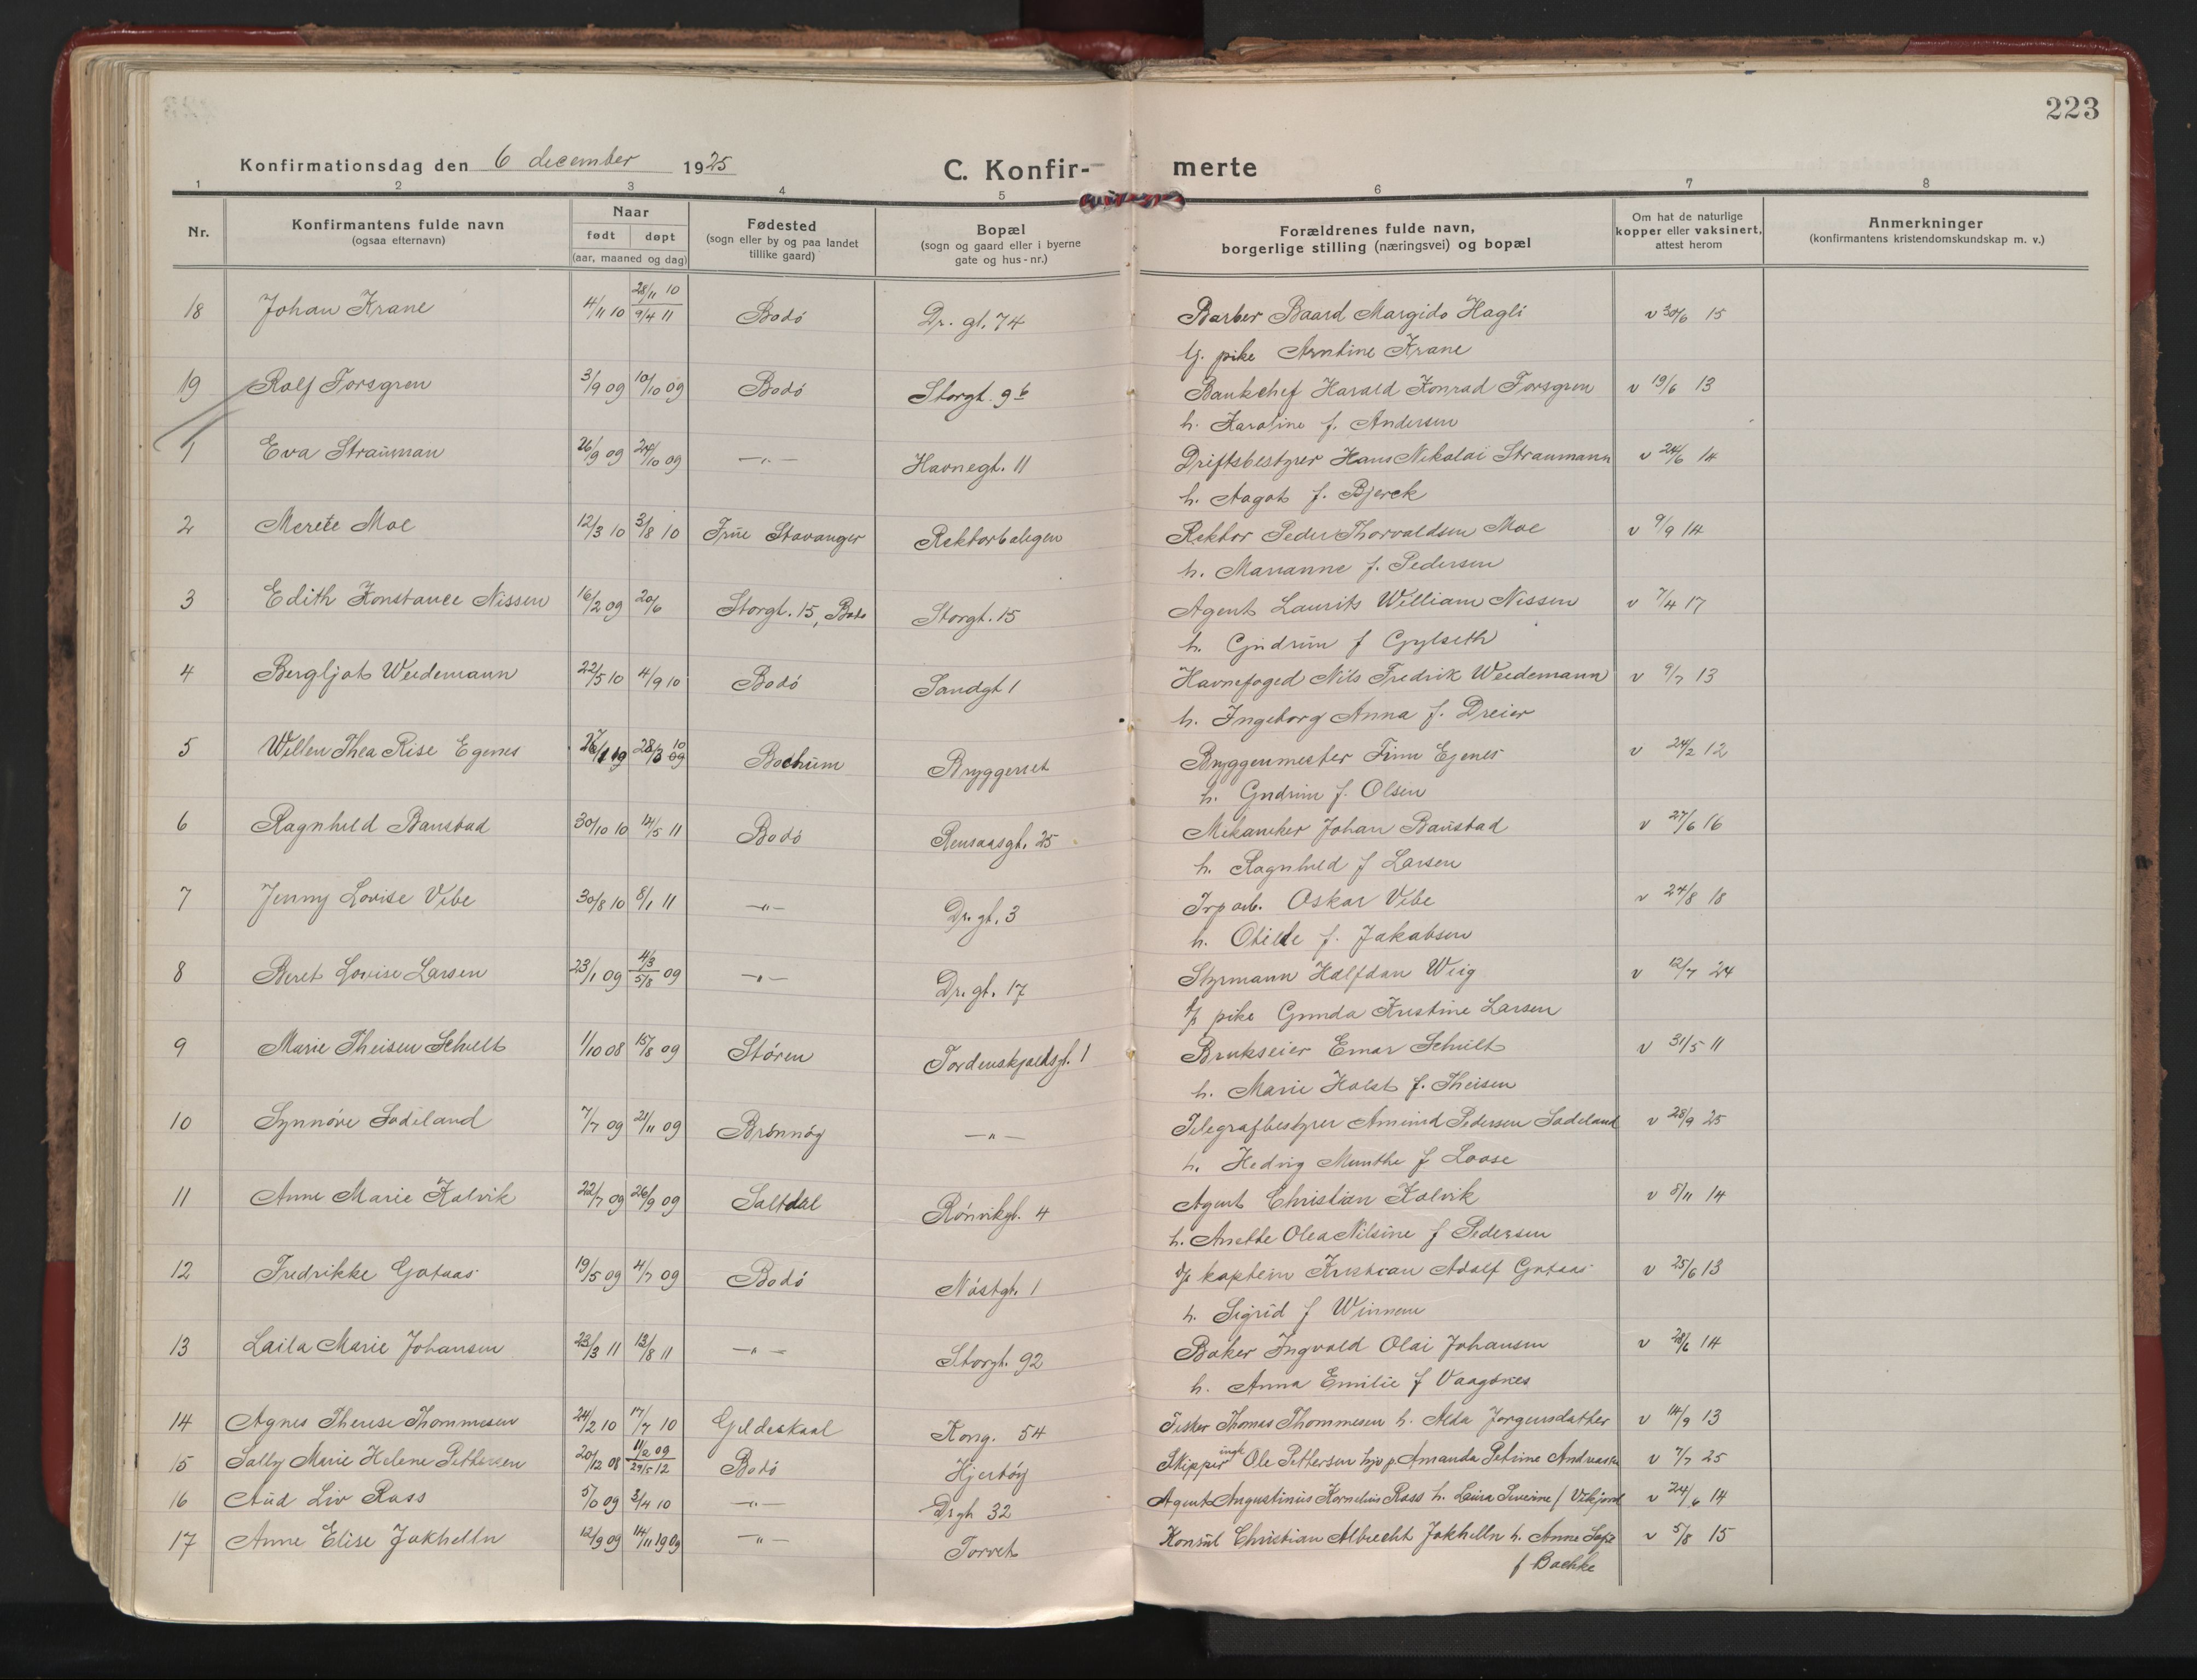 223
Konfirmationsdag den 6 december 1925 C. Konfir- merte
1 2 3 4 5 6 7 8
Nr. Konfirmantens fulde navn (ogsaa efternavn) Naar født døpt (aar, maaned og dag) Fødested (sogn eller by og paa landet tillike gaard) Bopæl (sogn og gaard eller i byerne gate og hus-nr.) Forældrenes fulde navn, borgerlige stilling (næringsvei) og bopæl Om hat de naturlige kopper eller vaksinert, attest herom Anmerkninger (konfirmantens kristendomskundskap m. v.)
18 Johan Krane 4/11 10 28/11 10 9/4 11 Bodó Dr. gt. 74 Barber Baard Margido Hagli v 30/6 15
G. pike Arntine Krane
19 Rolf Forsgren 3/9 09 10/10 09 Bodó Storgt. 9b Bankchef Harald Konrad Forsgren v 19/6 13
h. Karoline f. Andersen
1 Eva Strauman 26/9 09 24/10 09 —"— Havnegt. 11 Driftsbestyrer Hans Nikolai Straumann v 24/6 14
h. Aagot f. Bjerck
2 Merete Moe 12/3 10 3/8 10 Frue Stavanger Rektorboligen Rektor Peder Thorvaldsen Moe v 9/9 14
h. Marianne f. Pedersen
3 Edith Konstance Nissen 16/2 09 20/6 Storgt. 15, Bodo Storgt. 15 Agent Laurits William Nissen v 7/4 17
h. Gudrun f Gylseth
4 Bergljot Weidemann 22/5 10 4/9 10 Bodó Sandgt 1 Havnefoged Nils Fredrik Weidemann v 9/7 13
h. Ingeborg Anna f. Dreier
5 Willen Thea Rise Egenes 28/3 10 Bochum Bryggeriet Bryggenmester Finn Egenes v 24/2 12
h. Gudrun f. Olsen
6 Ragnhild Baustad 30/10 10 14/5 11 Bodó Rensaasgt. 25 Mekaniker Johan Baustad v 27/6 16
h. Ragnhild f Larsen
7 Jenny Lovise Vibe 30/8 10 8/1 11 —"— Dr. gt. 3 Oskar Vibe v 24/8 18
h. Otilde f. Jakobsen
8 Beret Lovise Larsen 23/1 09 4/3 5/8 09 —"— Dr. gt. 17 Styrmann Halfdan Wiig v 12/7 24
pike Gunda Kristine Larsen
9 Marie Theisen Schult 1/10 08 15/8 09 Stóren Tordenskjoldsgt. 1 Brukseier Einar Schult v 31/5 11
h. Marie Holst f. Theisen
10 Synnóve Sodeland 7/7 09 21/11 09 Brónnóy —"— Telegrafbestyrer Amund Pedersen Sodeland v 28/9 25
h. Hedvig Munthe f Loose
11 Anne Marie Kolvik 22/7 09 26/9 09 Saltdal Rónvikgt. 4 Agent Christian Kolvik v 8/11 14
h. Anette Olea Nilsine f Pedersen
12 Fredrikke Gotaas 19/5 09 4/7 09 Bodó Nóstgt. 1 kaptein Kristian Adolf Gotaas v 25/6 13
h. Sigrid f Winnem
13 Laila Marie Johansen 23/3 11 13/8 11 —"— Storgt. 92 Baker Ingvald Olai Johansen v 28/6 14
h. Anna Emilie f Vaagónes
14 Agnes Therese Thommesen 24/2 10 17/7 10 Gildeskaal Kong. 54 Fisker Thomas Thommesen h. Alda Jorgensdatter v 14/9 13
15 Sally Marie Helene Pettersen 20/12 08 11/2 09 29/5 12 Bodó Hjertóy Skipper Ole Pettersen Amanda Petrine Andreassen v 7/7 25
16 Aud Liv Rass 3/4 10 —"— Drgt 32 Agent Augustinius Kornelius Rass h. Laura Severine f Vikjord v 24/6 14
17 Anne Elise Jakhelln 12/9 09 14/11 1909 —"— Torvet Konsul Christian Albrecht Jakhelln h. Anne Sofie v 5/8 15
f Bachke